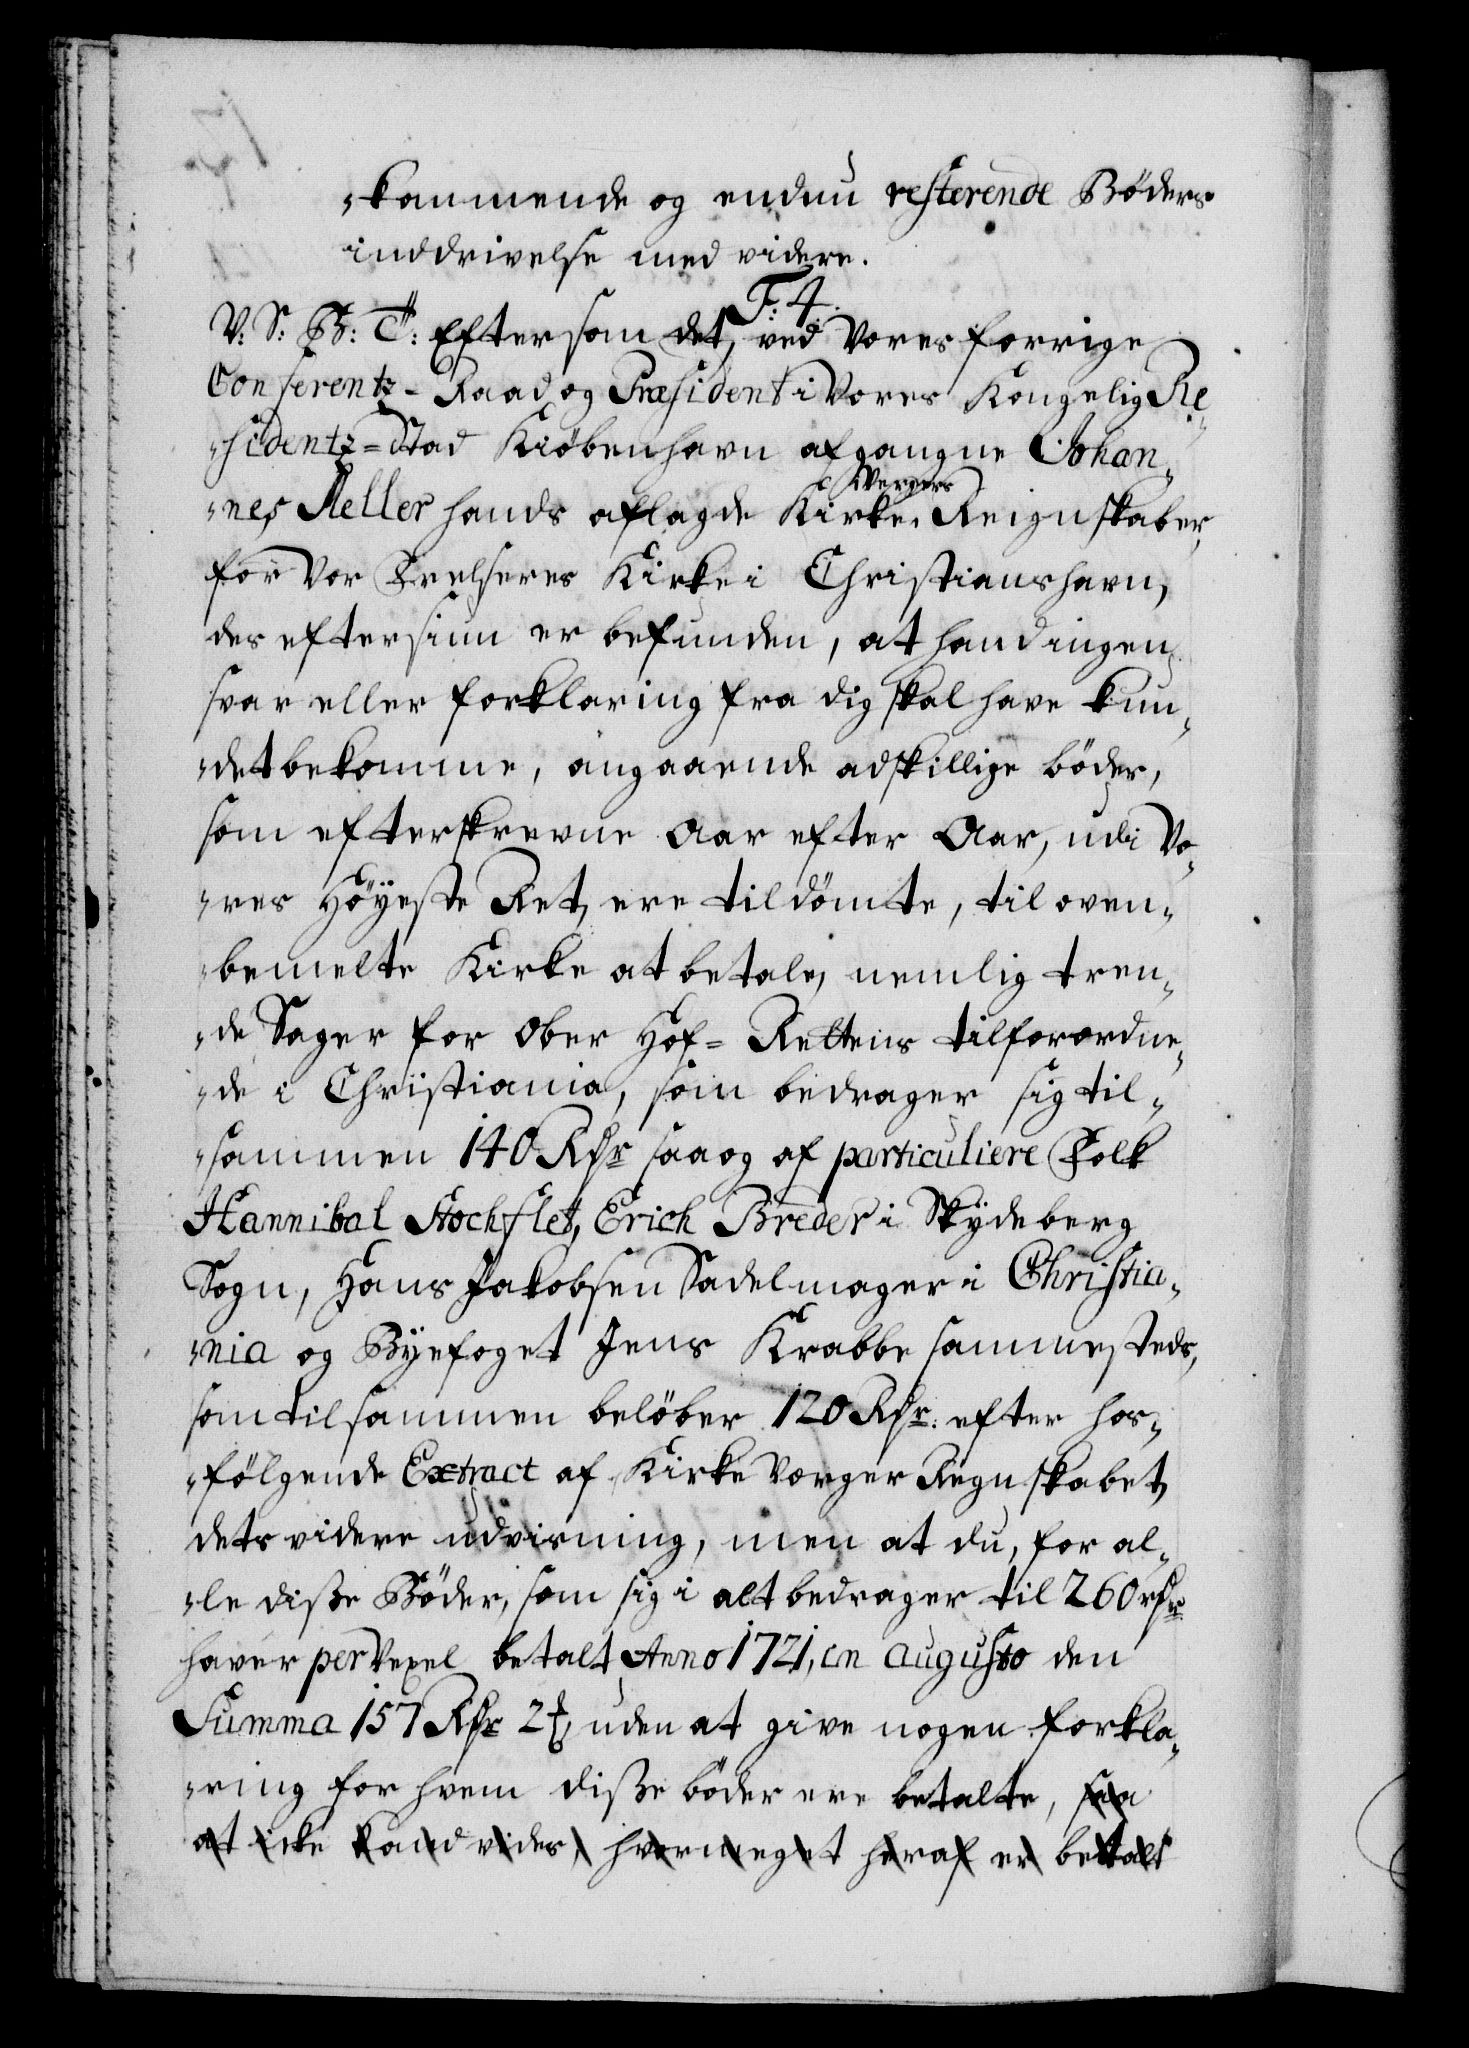 -kommende og endnu resterende Böders
inddrivelse med videre.
F. 4.
V: S: B: T: Eftersom det, ved Vores forrige
Conferentz-Raad og Præsident i Vores Kongelig Re-
-sidentz-Stad Kiöbenhavn afgangne Johan-
-nes Meller hands aflagde Kirke-Reignskaber,
Wergers
for Vor Frelseres Kirke i Christianshavn,
des eftersiun er befunden, at hand ingen
svar eller forklaring fra dig skal have kun-
-det bekomme, angaaende adskillige böder,
som efterskrevne Aar efter Aar, udi Vo-
-res Höyeste Ret, ere tildömte, til oven-
-bemelte Kirke at betale, nemlig tren-
-de Sager for Ober Hof-Rettens tilforordne-
-de i Christiania, som bedrager sig til-
-sammen 140 Rdr saa og af particuliere Folk
Hannibal Stochflet, Erich Breder i Skydeberg
Sogn, Hans Jakobsen Sadelmager i Christia-
-nia og Byefoget Jens Krabbe sammesteds,
som tilsammen belöber 120 Rdr. efter hos-
-fölgende Extract af Kirke Vørger Regnskabet,
dets videre udvisning, men at du, for al-
-le disse Böder, som sig i alt bedrager til 260 rdr
haver per Vexel betalt Anno 1721, in Augusto den
Summa 157 Rdr 2 ß, uden at give nogen forkla-
-ring for hvem disse böder ere betalte, saa
at icke kand vides, hvormeget heraf er betalt